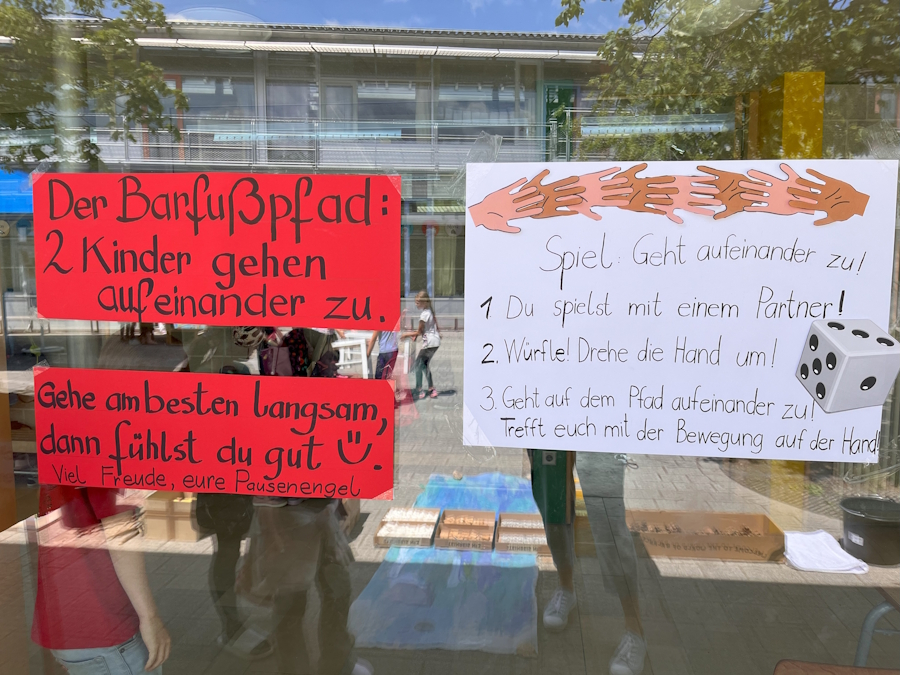 Der Barfußpfad:
2 Kinder gehen
aufeinander zu.
Gehe am besten langsam,
dann fühlst du gut
Viel Freude, eure Pausenengel
Spiel: Geht aufeinander zu!
1. Du spielst mit einem Partner!
2. Würfle! Drehe die Hand um!
3. Geht auf dem Pfad aufeinander zu!
Trefft euch mit der Bewegung auf der Hand!